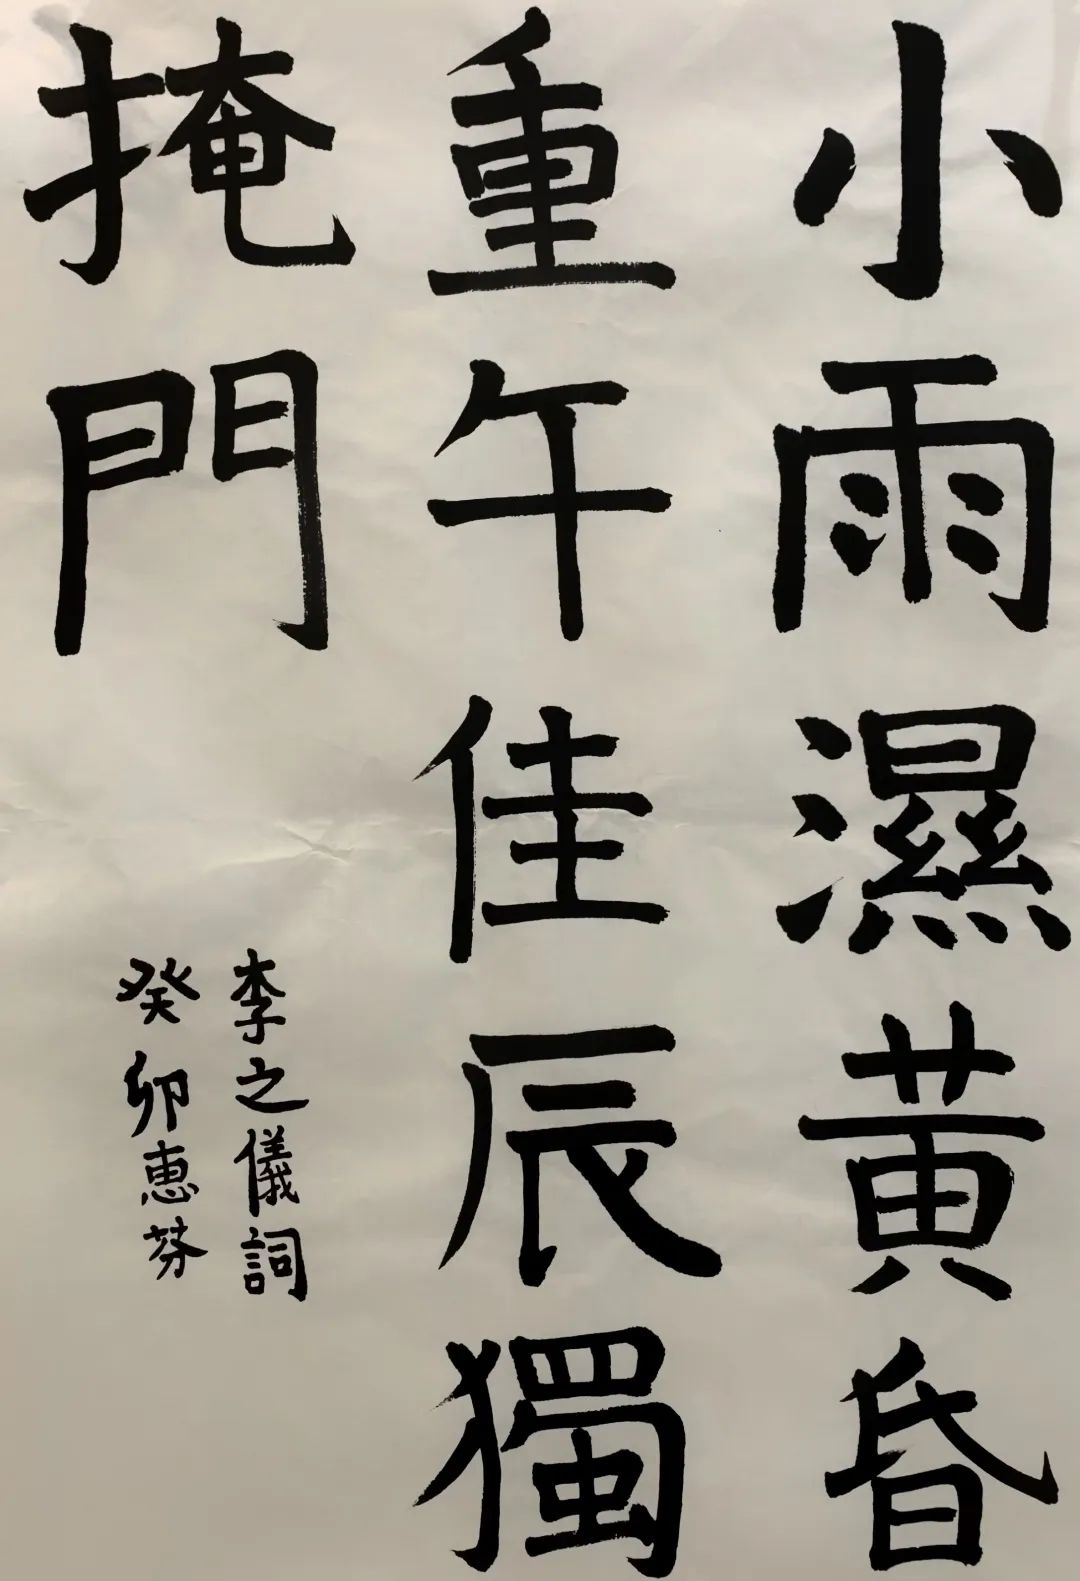 小雨濕黃昏
重午佳辰獨
掩門
李之儀詞
癸卯惠芬